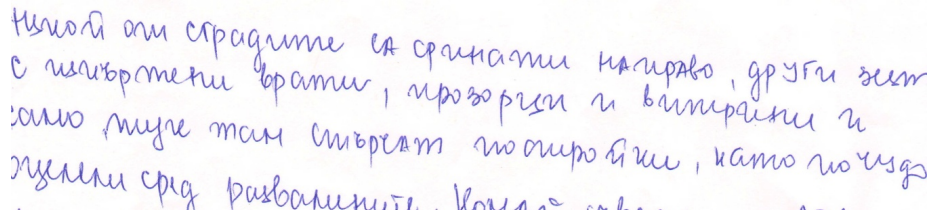 Някой от сградите са сринати направо, други зеят
с изкъртени врати, прозорци и витрини и
само тук там стърчат постройки, като по чудо
оцелели сред развалините.